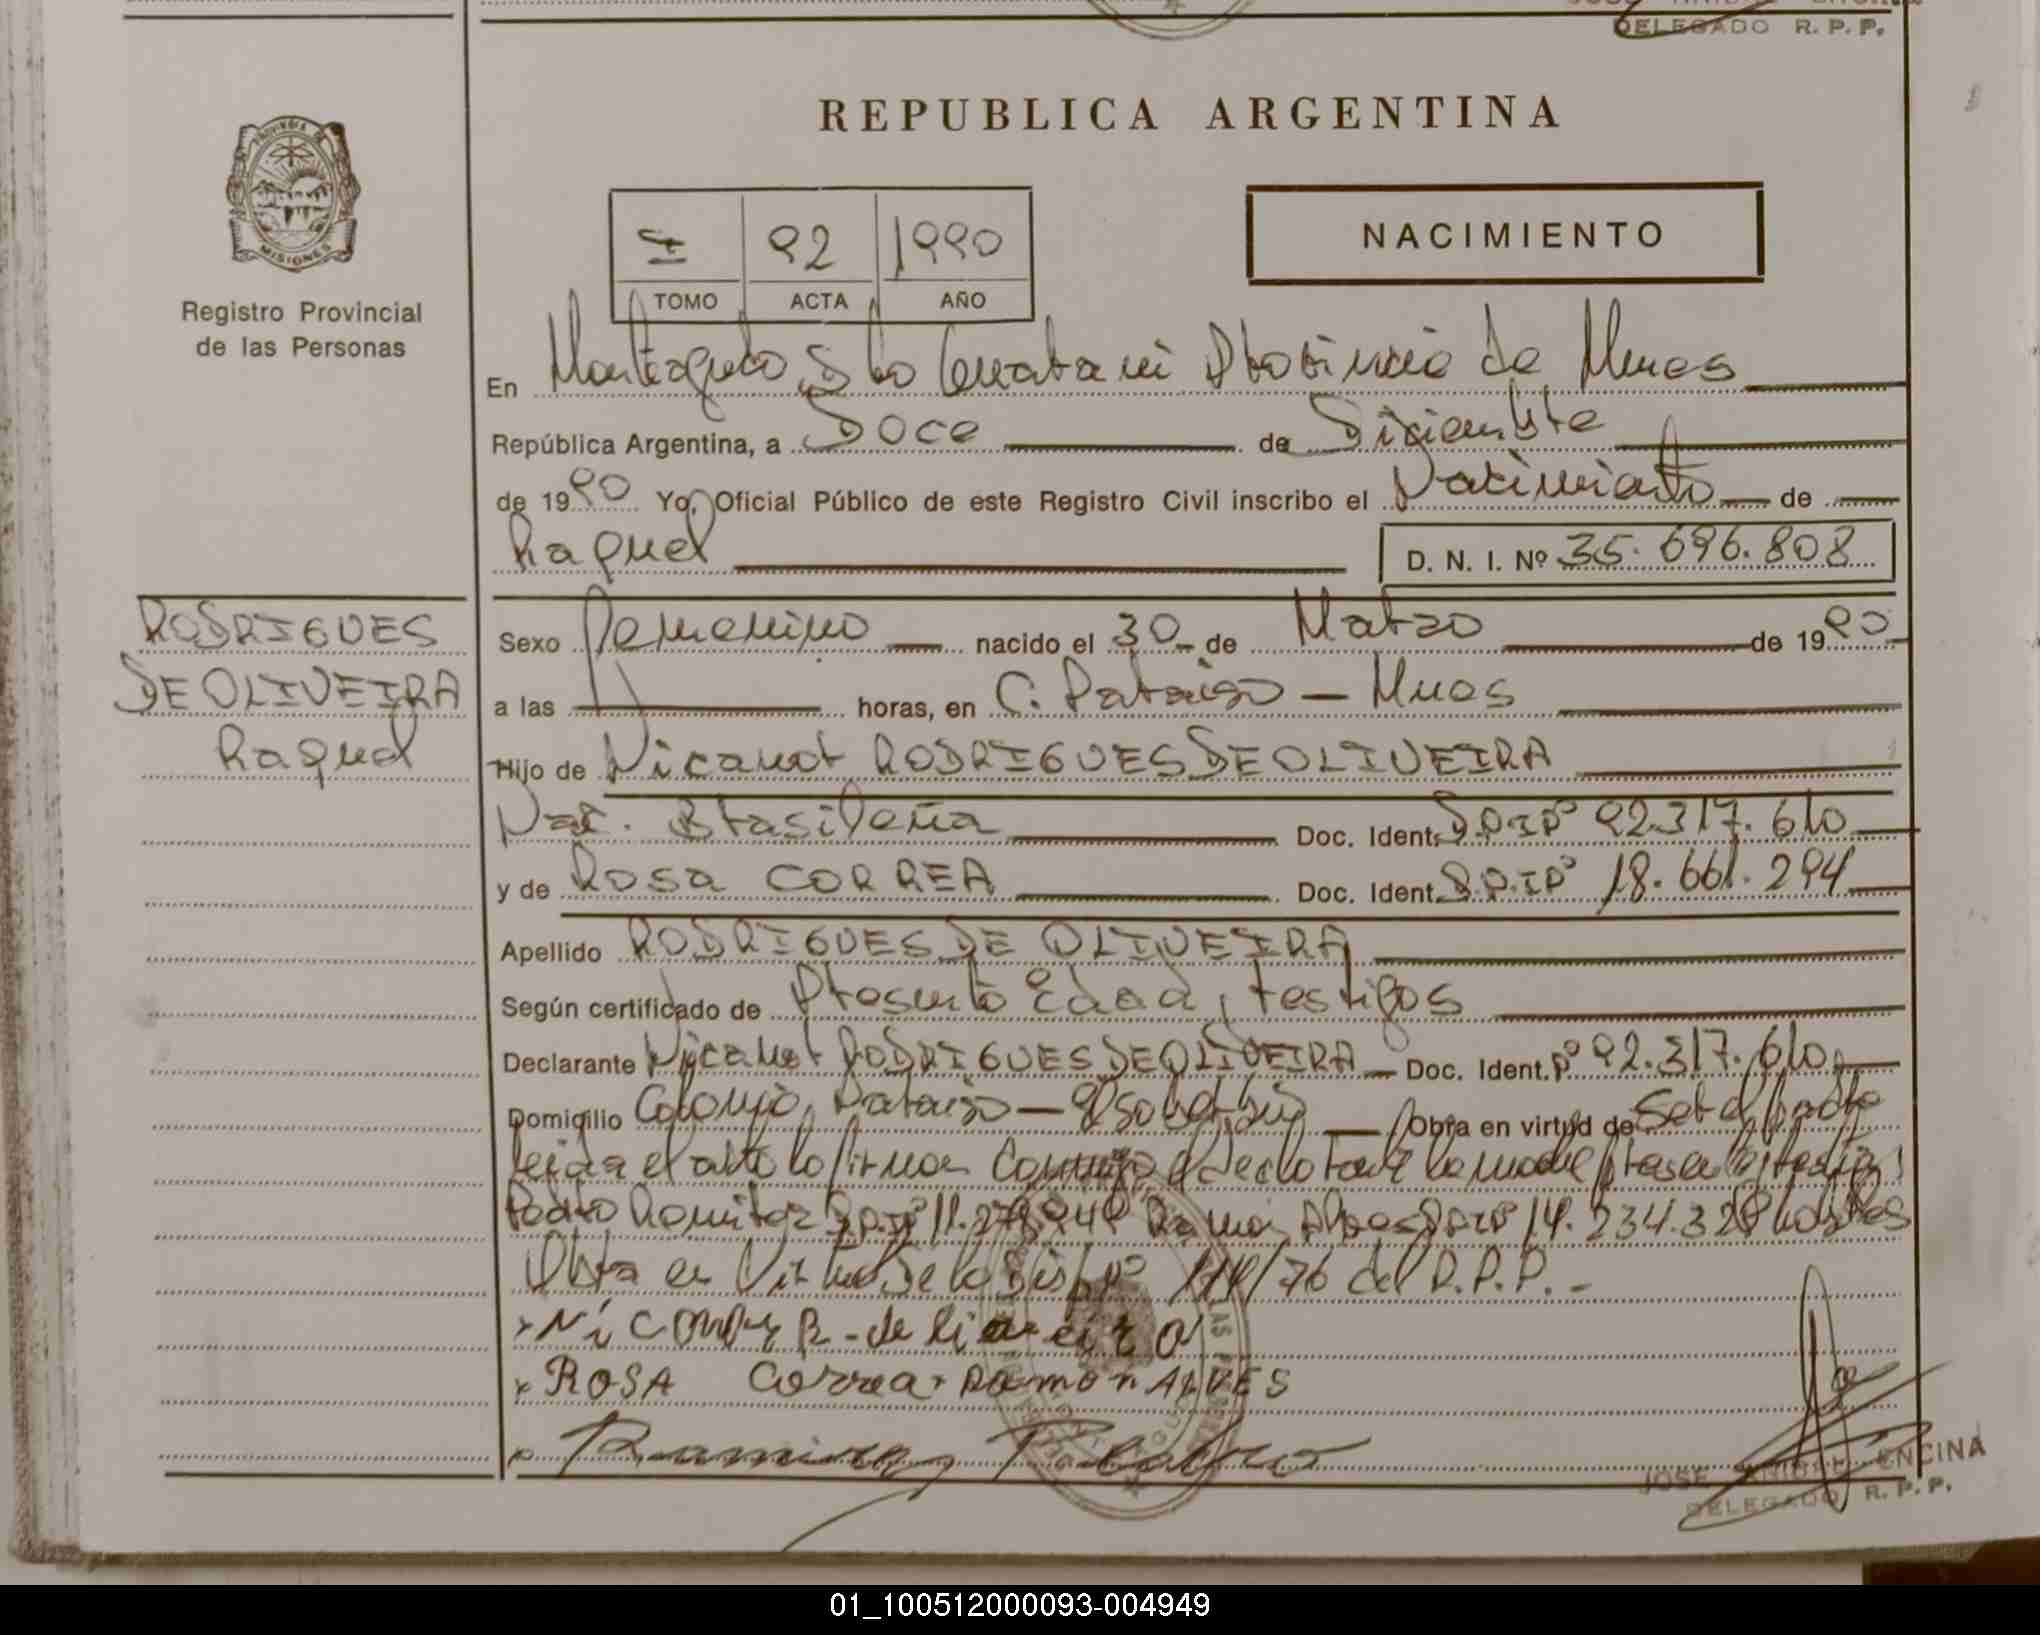 DELEGADO R. P. P.
REPUBLICA ARGENTINA
PROVINCIA DE
MISIONES
Registro Provincial
de las Personas
I 92 1990
TOMO ACTA AÑO
NACIMIENTO
En Dto Guarani Provincia de Mnes
República Argentina, a Doce de Diciembre
de 1990 Yo, Oficial Público de este Registro Civil inscribo el Nacimiento de
Raquel D. N. I. Nº 35.696.808
RODRIGUES
DE OLIVEIRA
Raquel
Sexo Femenino nacido el 30 de Marzo de 1990
a las horas, en C. Paraiso - Mnes
Hijo de Nicanor RODRIGUES DE OLIVEIRA
Nac. Brasileña Doc. Ident. D.N.I Nº 92.317.610
y de Rosa CORREA Doc. Ident. D.N.I Nº 18.661.294
Apellido RODRIGUES DE OLIVEIRA
Según certificado de Presunta Edad, testigos
Declarante Nicanor RODRIGUES DE OLIVEIRA Doc. Ident. Nº 92.317.610
Domicilio Colonia Paraiso - Obra en virtud de Ser el padre
leida el acta la firman Conmigo el declarante la madre
Pedro Ramirez D.N.I Nº Ramon Alves D.N.I Nº 14.234.328
Obra en Virtud de la Disp. Nº 111/76 del R.P.P.-
ROSA Correa RAMON ALVES
Ramirez Pedro
JOSE ANIBAL ENCINA
DELEGADO R. P. P.
01_100512000093-004949